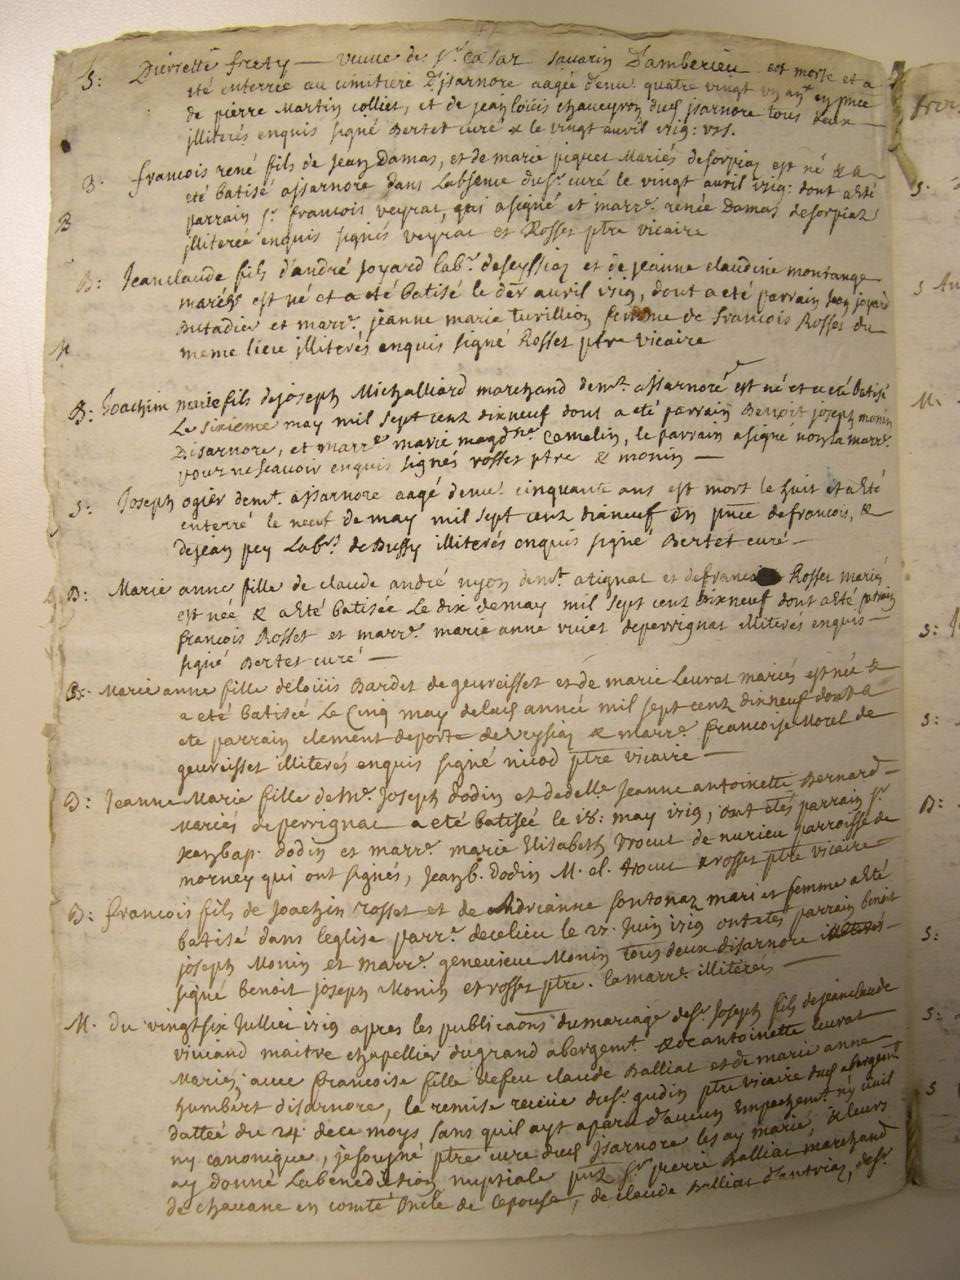 S: Pierrette frety — veuve de Sr Cesar Savarin Damberieu est morte et a
eté enterrée au cimitiere Disarnore aagée denv. quatre vingt un ans en pnce
de pierre Martin collier, et de jean louis chaveyron dud. jsarnore tous deux
jlliterés enquis signé Bertet curé & le vingt avril 1719: vis.
B. francois rené fils de Jean Damas, et de marie piquet Mariés desorpiaz est né & a
eté batisé assarnore dans Labsence du Sr. curé le vingt avril 1719: dont a eté
B parrain Sr. francois veyrat, qui a signé et marre. renée Damas desorpiaz
jlliterée enquis signés veyrat et Rosset ptre vicaire
B: Jeanclaude fils d'andré joyard labr. deseyssiaz et de jeanne claudine montange
mariés est né et a eté batisé le der avril 1719, dont a eté parrain jean joyard
Butadier et marre. jeanne marie turillion femme de francois Rosset du
M meme lieu jlliterés enquis signé Rosset ptre vicaire
B: Joachim marie fils de joseph Michalliard marchand demt. assarnore est né et a eté batisé
Le sixieme may mil sept cent dixneuf dont a eté parrain Benoit joseph monin
Disarnore, et marre marie magdne Camelin, le parrain a signé non la marre.
pour ne scavoir enquis signés rosset ptre & monin —
S: Joseph ogier demt. assarnore aagé denv. cinquante ans est mort le huit et a eté
enterré le neuf de may mil sept cent dixneuf En pnce de francois, &
de jean pey Labrs. de Bussy illiterés enquis signé Bertet curé —
B: Marie anne fille de claude andré nyon demt. atignat et de francoise Rosset mariés
est née & a eté batisée Le dix de may mil sept cent dixneuf dont a eté parrain
francois Rosset et marre. marie anne viviet deperrignat illiterés enquis —
signé Bertet curé —
B: Marie anne fille de loüis Bardet de geureisset et de marie Leurat mariés est née &
a eté batisée Le Cinq may de lad. année mil sept cent dixneuf dont a
eté parrain clement deporte de vyssiaz & marre francoise Morel de
geureisset illiterés enquis signé nicod ptre vicaire —
B: Jeanne Marie fille de Mr. Joseph dodin et de delle Jeanne antoinette Bernard —
Mariés deperrignat a eté batisée le 18. may 1719, ont etés parrain Sr
Jean bap. dodin et marre. marie Elisabeth trocut de nurieu parroisse de
morney qui ont signés, Jean b. dodin M. el. trocut & rosset ptre vicaire
B: francois fils de Joachin rosset et de Andrianne fontonaz mari et femme a eté
batisé dans leglise parre. de ce lieu le 27. Juin 1719 ont etés parrain benoit
joseph Monin et marre. genevieve Monin tous deux disarnore illiterés —
signé benoit joseph Monin et rosset ptre. la marre. illiterés —
M. du vingt six Jullier 1719 apres les publicaons du mariage de Sr. Joseph fils de jeanclaude
viviand maitre chapellier du grand abergemt. & de antoinette leurat
Mariés; avec francoise fille de feu claude Balliat et de marie anne
humbert disarnore, la remise receüe du Sr. gudin ptre vicaire dud. abergemt
dattée du 24. de ce moys, sans quil ayt aparu d'aucun Empachemt. ny civil
ny canonique, je soussigné ptre curé dud. jsarnore les ay mariés, & leurs
ay donné La benediction nuptiale pnt Sr. pierre Balliat marchand
de chavane en comté oncle de lepouse, de claude Balliat d'antriaz, de Sr.